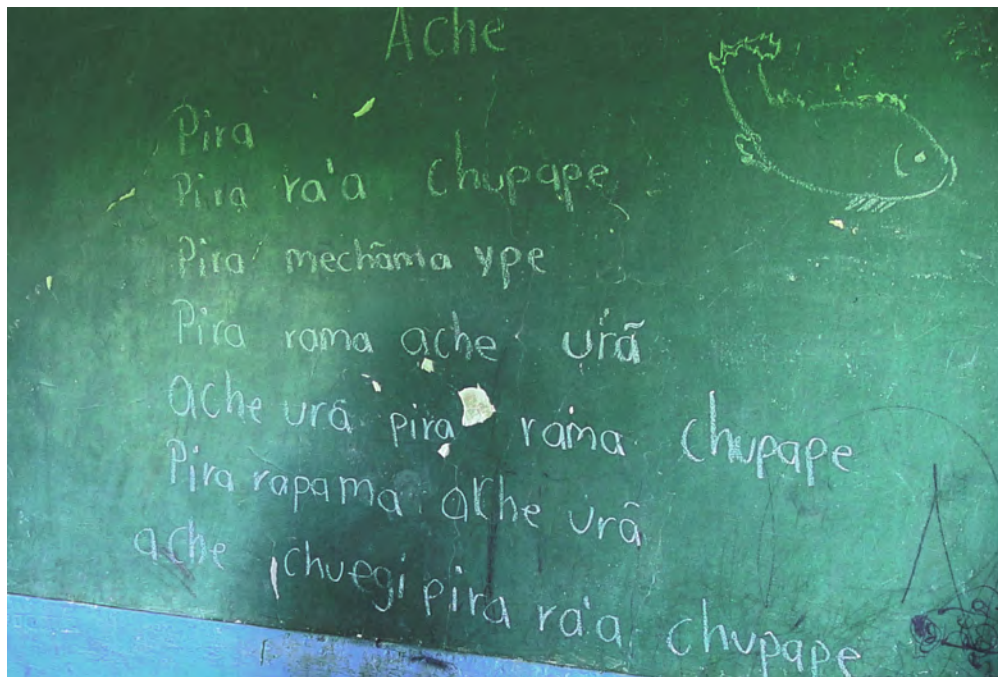 Ache
Pira
Pira ra'a chupape
Pira mechãma ype
Pira rama ache urã
ache urã pira rama chupape
Pira rapama ache urã
ache chuegi pira ra'a chupape